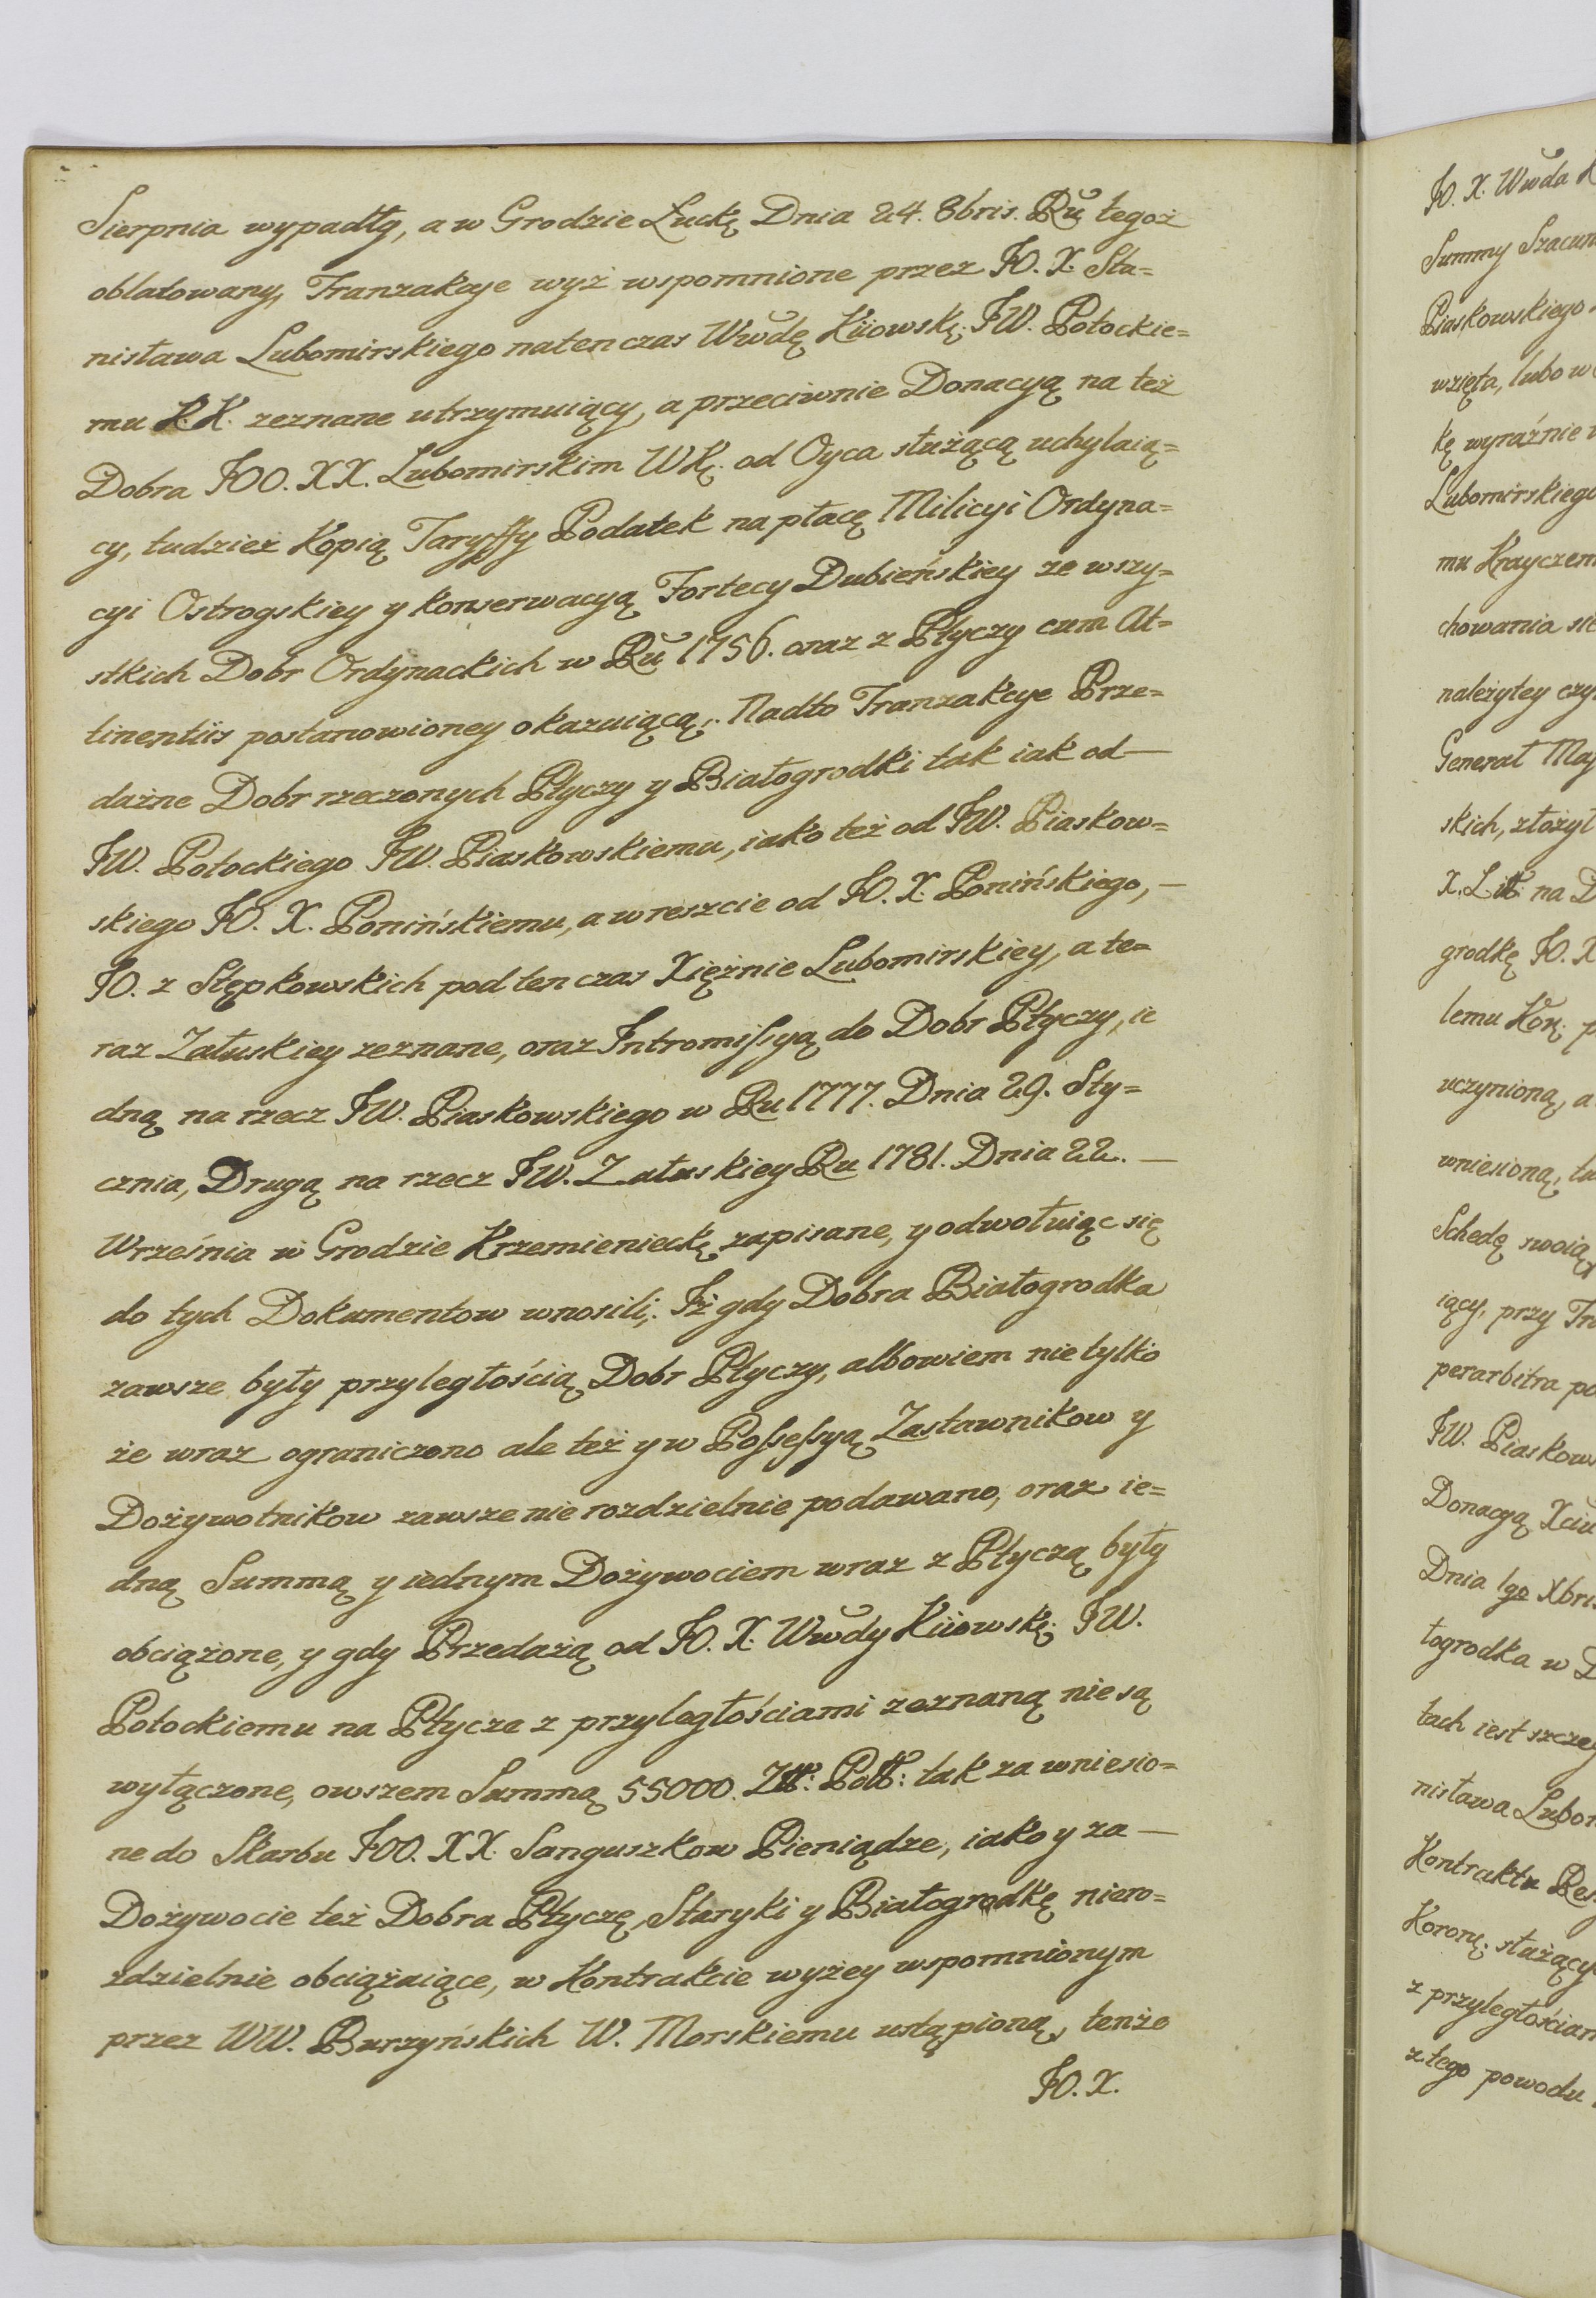 Sierpnia wypadły, a w Grodzie Łuckę Dnia 24. 8bris. Ru tegoż
oblatowany, Tranzakcye wyż wspomnione przez JO. X. Sta=
nisława Lubomirskiego natenczas Wwdę Kiiowskę. JW. Potockie=
mu K.K. zeznane utrzymuiący, a przeciwnie Donacyą na też
Dobra JOO. XX. Lubomirskim WKę. od Oyca służącą uchylaią=
cy, tudzież Kopią Taryffy Podatek na płacę Milicyi Ordyna=
cyi Ostrogskiey y konserwacyą Fortecy Dubieńskiey ze wszy=
stkich Dobr Ordynackich w Ru 1756. oraz z Płyczy cum At=
tinentiis postanowioney okazuiącą,. Nadto Tranzakcye Prze=
dażne Dobr rzeczonych Płyczy y Białogrodki tak iak od —
JW. Potockiego JW. Piaskowskiemu, iako też od JW. Piaskow=
skiego JO. X. Ponińskiemu, a wreszcie od JO. X Ponińskiego, —
JO. z Stępkowskich pod ten czas Xiężnie Lubomirskiey, a te=
raz Załuskiey zeznane, oraz Intromissyą do Dobr Płyczy, ie
dną na rzecz JW. Piaskowskiego w Ru 1777. Dnia 29. Sty=
cznia, Drugą na rzecz JW. Załuskiey Ru 1781. Dnia 22. —
Września w Grodzie Krzemienieckę zapisane, y odwołuiąc się
do tych Dokumentow wnosili,. Iż gdy Dobra Białogrodka
zawsze były przyległością Dobr Płyczy, albowiem nie tylko
że wraz ograniczono ale też y w Possessyą Zastawnikow y
Dożywotnikow zawsze nierozdzielnie podawano, oraz ie=
dną Summą y iednym Dożywociem wraz z Płyczą były
obciążone, y gdy Przedażą od JO. X. Wwdy Kiiowskę. JW.
Potockiemu na Płycze z przyległościami zeznaną nie są
wyłączone, owszem Summą 55000. Złł: Poll: tak za wniesio=
ne do Skarbu JOO. XX. Sanguszkow Pieniądze, iako y za —
Dożywocie też Dobra Płyczę, Staryki y Białogrodkę niero=
zdzielnie obciążaiące, w Kontrakcie wyżey wspomnionym
przez WW. Burzyńskich W. Morskiemu ustąpioną, tenże
JO. X.
JO. X. Wwda
Summy Szacun
Piaskowskiego
wzięta, lubo w
kę wyraźnie
Lubomirskiego
mu Krayczem
chowania się
należytey czy
Generał May
skich, złożył
X. Litt: na D
grodkę JO. X
lemu Kor: p
uczynioną, a
wniesioną, ta
Schedę swoią
iący, przy Tr
perarbitra po
JW. Piaskows
Donacyą Xciu
Dnia 1go Xbris
łogrodka w D
tach iest szcze
nisława Lubom
Kontraktu Res
Koronę. służący
z przyległościam
z tego powodu